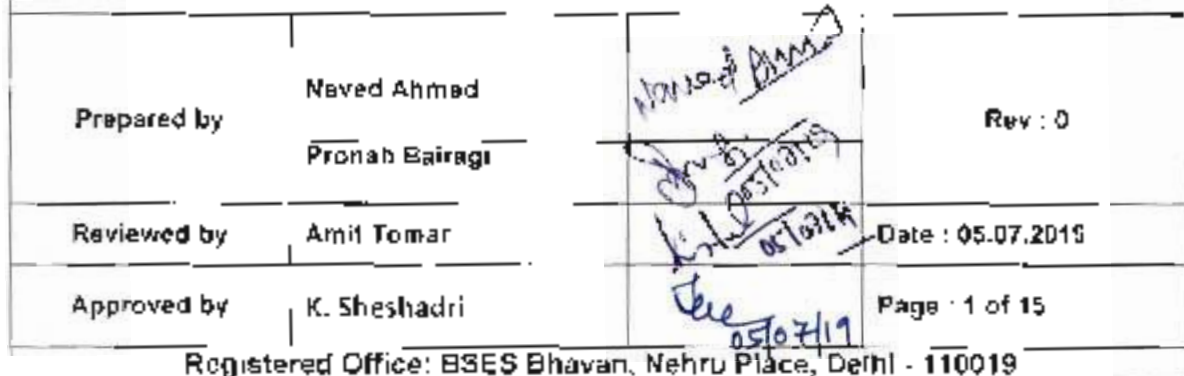 Naved Ahmed
Naved Ahmed
Prepared by
Rev : 0
Pronab Bairagi
05/07/19
Reviewed by
Amit Tomar
05/07/19
Date : 05.07.2019
Approved by
K. Sheshadri
05/07/19
Page : 1 of 15
Registered Office: BSES Bhavan, Nehru Place, Delhi - 110019